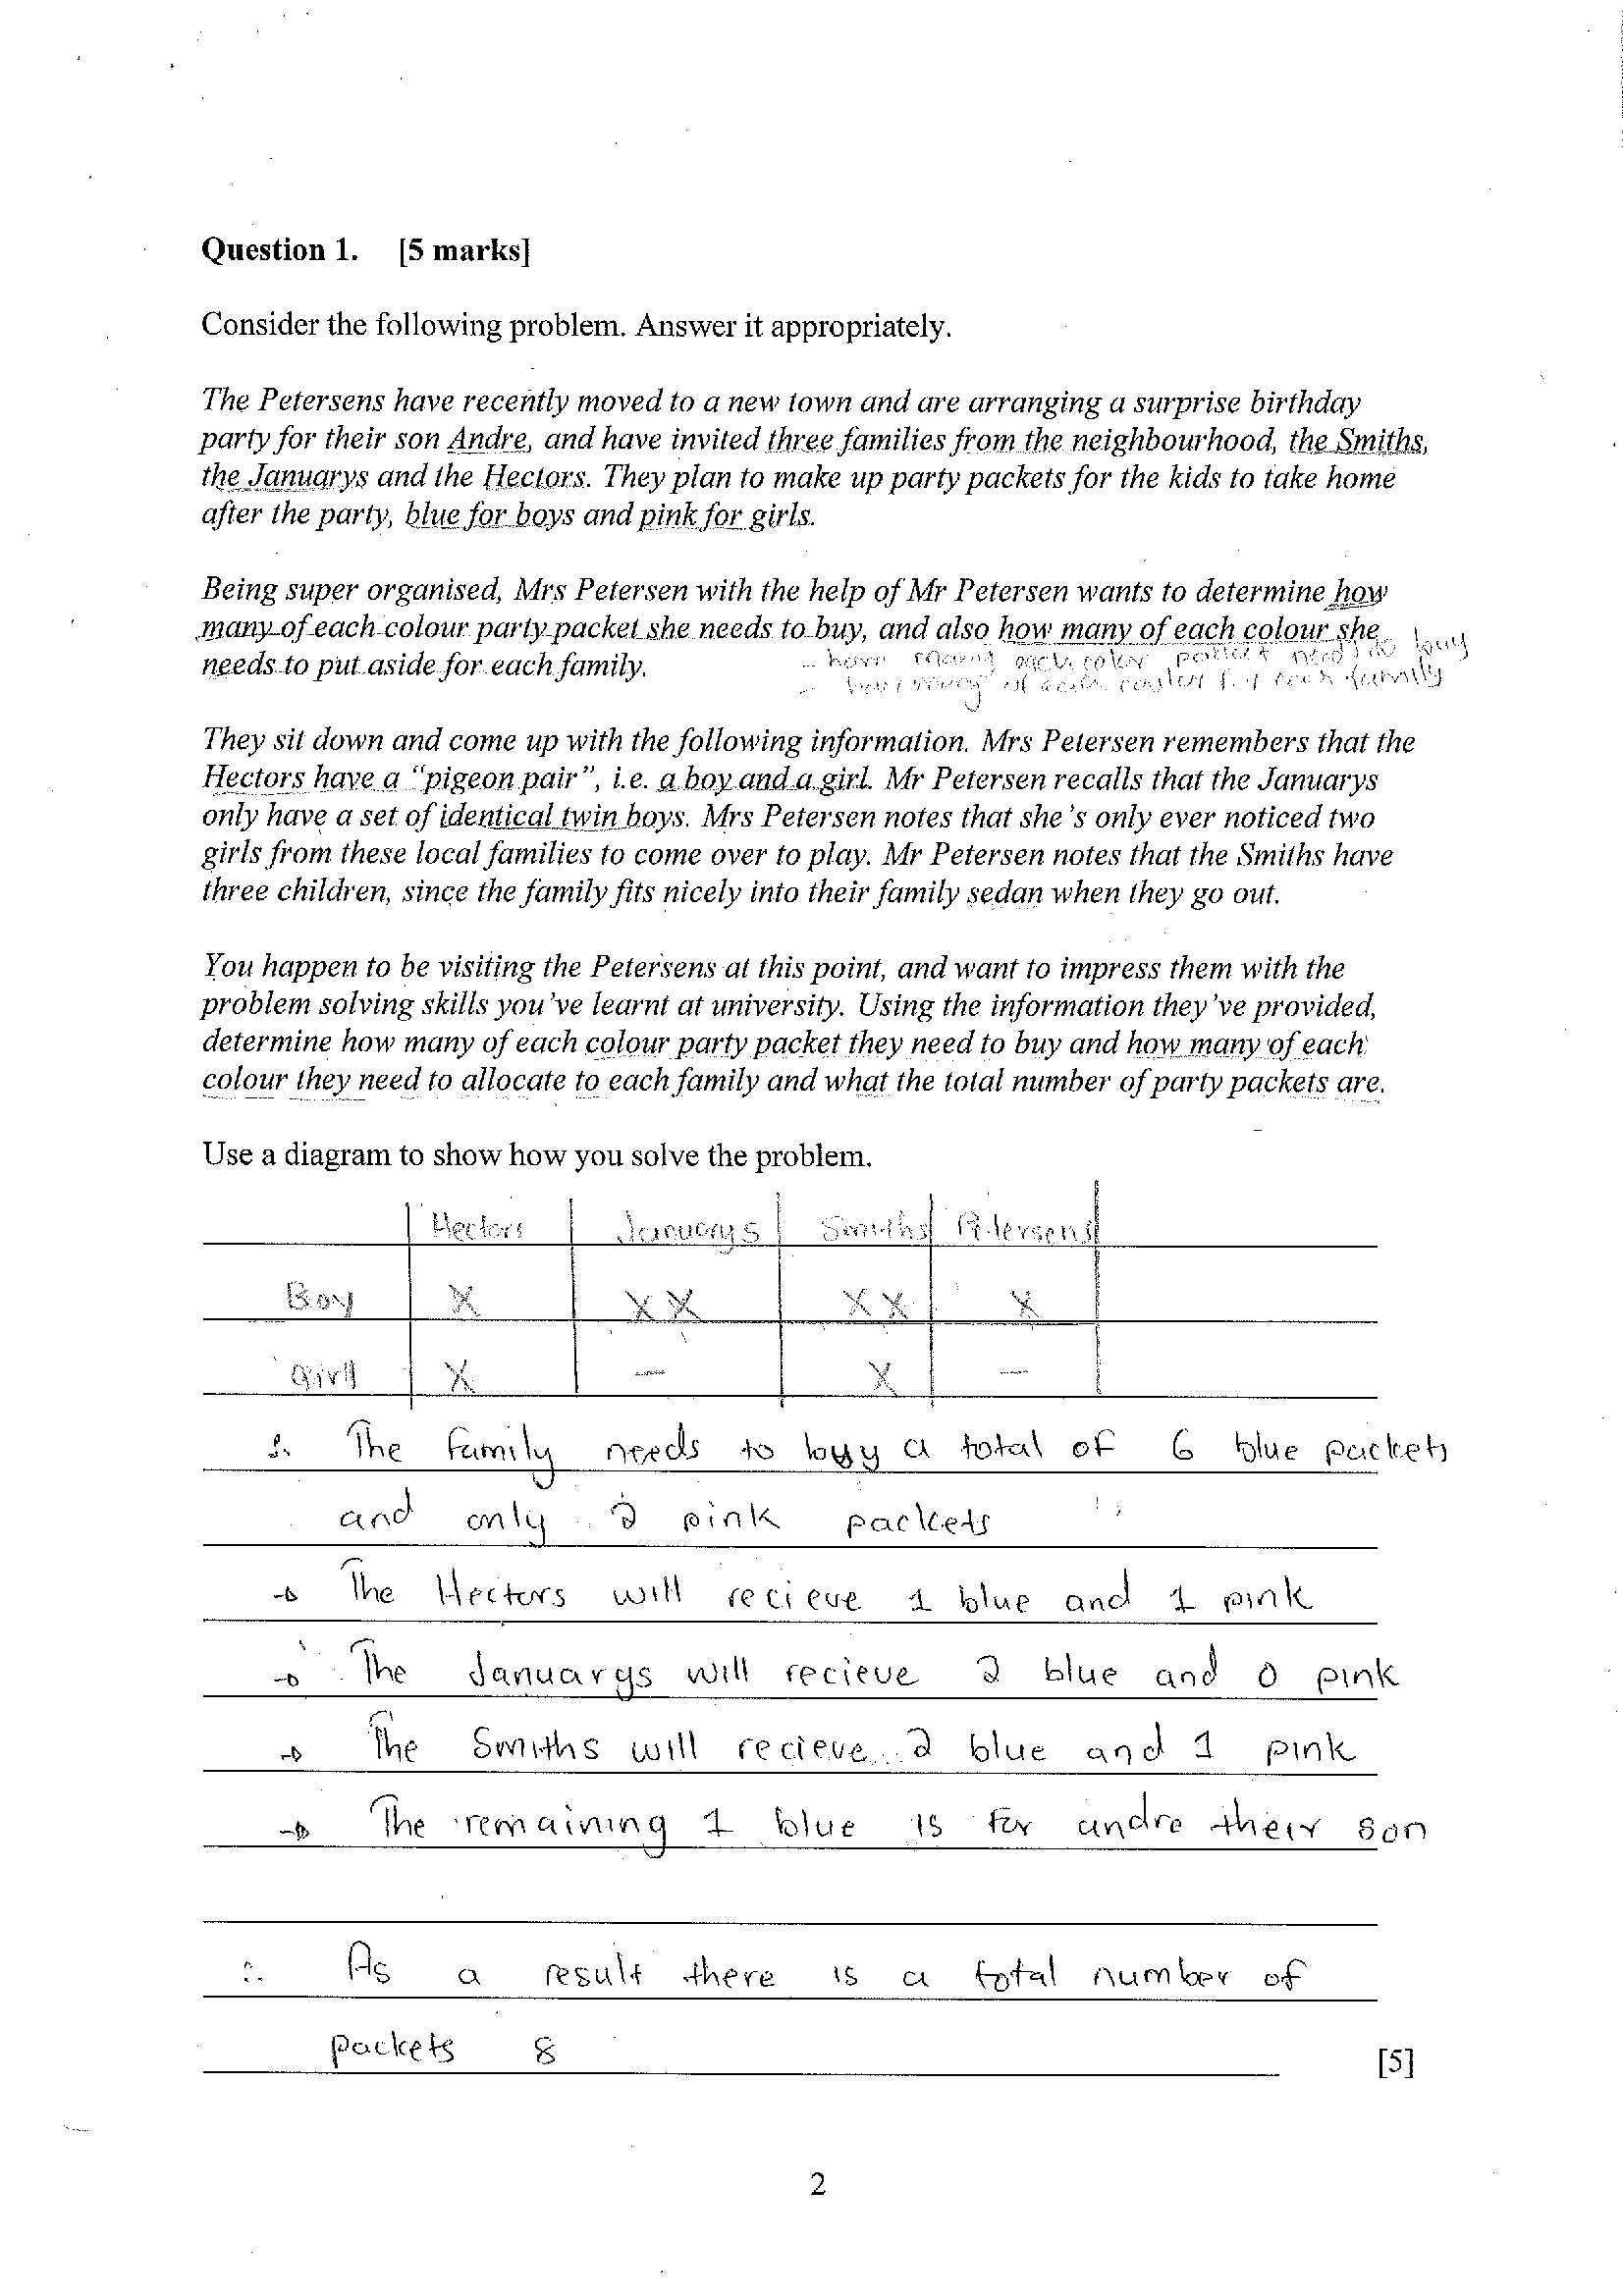 Question 1. [5 marks]
Consider the following problem. Answer it appropriately.
The Petersens have recently moved to a new town and are arranging a surprise birthday
party for their son Andre, and have invited three families from the neighbourhood, the Smiths,
the Januarys and the Hectors. They plan to make up party packets for the kids to take home
after the party, blue for boys and pink for girls.
Being super organised, Mrs Petersen with the help of Mr Petersen wants to determine how
many of each colour party packet she needs to buy, and also how many of each colour she
needs to put aside for each family.
- how many each color packet need to buy
- how many of each for each family
They sit down and come up with the following information. Mrs Petersen remembers that the
Hectors have a "pigeon pair", i.e. a boy and a girl. Mr Petersen recalls that the Januarys
only have a set of identical twin boys. Mrs Petersen notes that she's only ever noticed two
girls from these local families to come over to play. Mr Petersen notes that the Smiths have
three children, since the family fits nicely into their family sedan when they go out.
You happen to be visiting the Petersens at this point, and want to impress them with the
problem solving skills you've learnt at university. Using the information they've provided,
determine how many of each colour party packet they need to buy and how many of each
colour they need to allocate to each family and what the total number of party packets are.
Use a diagram to show how you solve the problem.
Hectors Januarys Smiths Petersens
Boy X XX XX X
Girl X — X —
∴ The family needs to buy a total of 6 blue packets
and only 2 pink packets
→ The Hectors will recieve 1 blue and 1 pink
→ The Januarys will recieve 2 blue and 0 pink
→ The Smiths will recieve 2 blue and 1 pink
→ The remaining 1 blue is for andre their son
∴ As a result there is a total number of
packets 8
[5]
2